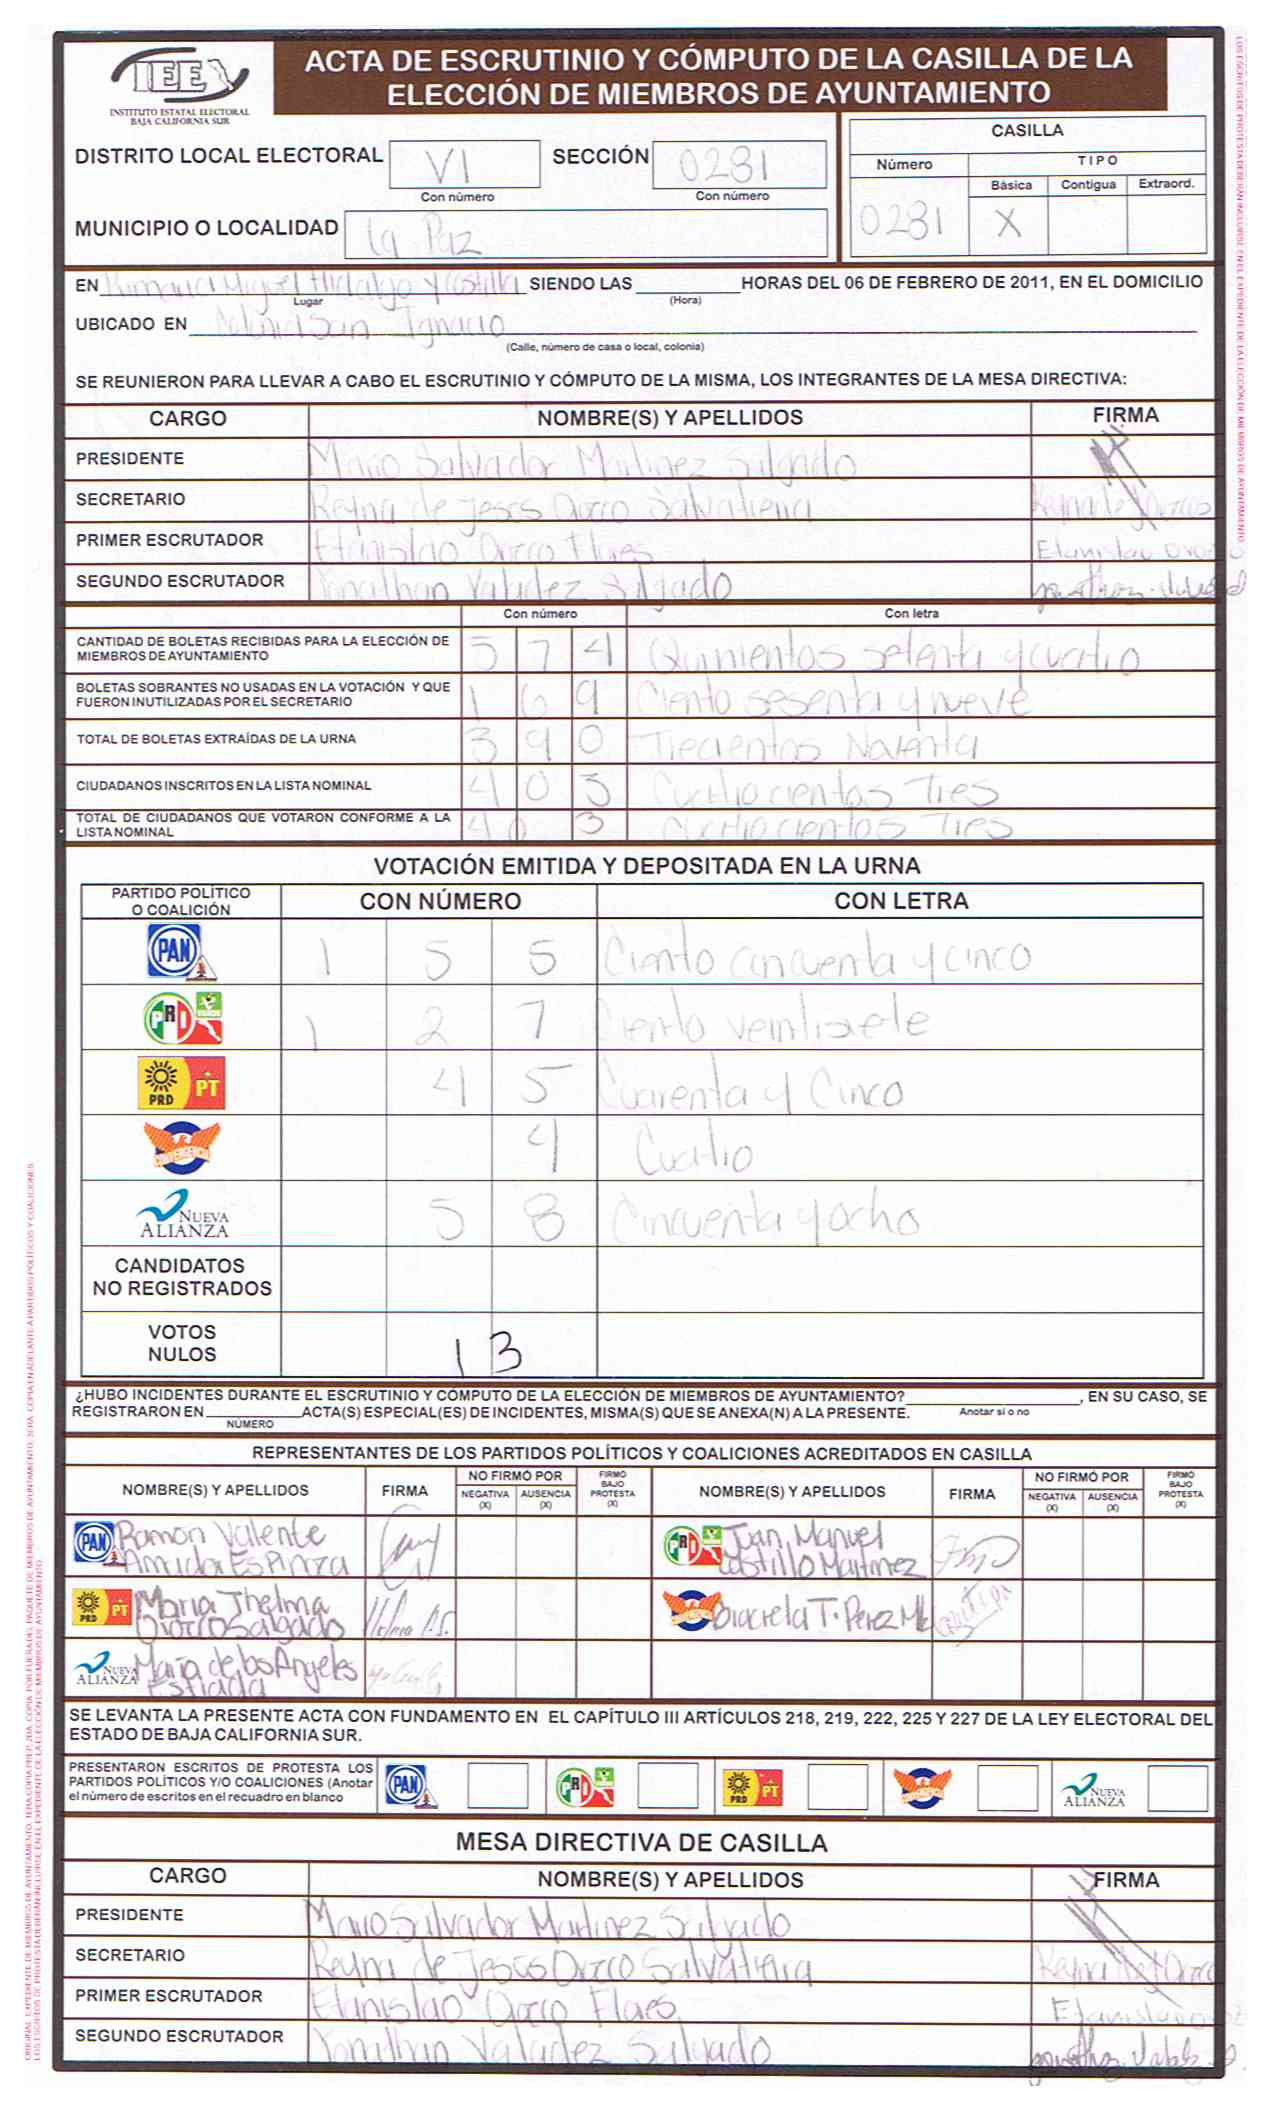 IEE
INSTITUTO ESTATAL ELECTORAL
BAJA CALIFORNIA SUR
ACTA DE ESCRUTINIO Y CÓMPUTO DE LA CASILLA DE LA
ELECCIÓN DE MIEMBROS DE AYUNTAMIENTO
DISTRITO LOCAL ELECTORAL VI SECCIÓN 0281
Con número Con número
MUNICIPIO O LOCALIDAD La Paz
CASILLA
Número TIPO
Básica Contigua Extraord.
0281 X
EN Miguel Hidalgo y Costilla SIENDO LAS HORAS DEL 06 DE FEBRERO DE 2011, EN EL DOMICILIO
Lugar (Hora)
UBICADO EN San Ignacio
(Calle, número de casa o local, colonia)
SE REUNIERON PARA LLEVAR A CABO EL ESCRUTINIO Y CÓMPUTO DE LA MISMA, LOS INTEGRANTES DE LA MESA DIRECTIVA:
CARGO NOMBRE(S) Y APELLIDOS FIRMA
PRESIDENTE Mario Salvador Martinez Salgado
SECRETARIO Reyna de Jesos Orozco Salvatierra
PRIMER ESCRUTADOR Etanislao Orozco Flores
SEGUNDO ESCRUTADOR Jonathan Valadez Salgado
Con número Con letra
CANTIDAD DE BOLETAS RECIBIDAS PARA LA ELECCIÓN DE
MIEMBROS DE AYUNTAMIENTO 5 7 4 Quinientos setenta y cuatro
BOLETAS SOBRANTES NO USADAS EN LA VOTACIÓN Y QUE
FUERON INUTILIZADAS POR EL SECRETARIO 1 6 9 Ciento sesenta y nueve
TOTAL DE BOLETAS EXTRAÍDAS DE LA URNA 3 9 0 Trecientos Noventa
CIUDADANOS INSCRITOS EN LA LISTA NOMINAL 4 0 3 Cuatrocientos Tres
TOTAL DE CIUDADANOS QUE VOTARON CONFORME A LA
LISTA NOMINAL 4 0 3 Cuatrocientos Tres
VOTACIÓN EMITIDA Y DEPOSITADA EN LA URNA
PARTIDO POLÍTICO
O COALICIÓN CON NÚMERO CON LETRA
PAN 1 5 5 Ciento cincuenta y cinco
PRI VERDE 1 2 7 Ciento veintisiete
PRD PT 4 5 Cuarenta y Cinco
CONVERGENCIA 4 Cuatro
NUEVA ALIANZA 5 8 Cincuenta y ocho
CANDIDATOS
NO REGISTRADOS
VOTOS
NULOS 13
¿HUBO INCIDENTES DURANTE EL ESCRUTINIO Y CÓMPUTO DE LA ELECCIÓN DE MIEMBROS DE AYUNTAMIENTO? , EN SU CASO, SE
REGISTRARON EN ACTA(S) ESPECIAL(ES) DE INCIDENTES, MISMA(S) QUE SE ANEXA(N) A LA PRESENTE. Anotar sí o no
NÚMERO
REPRESENTANTES DE LOS PARTIDOS POLÍTICOS Y COALICIONES ACREDITADOS EN CASILLA
NOMBRE(S) Y APELLIDOS FIRMA NO FIRMÓ POR NEGATIVA (X) AUSENCIA (X) FIRMÓ BAJO PROTESTA (X) NOMBRE(S) Y APELLIDOS FIRMA NO FIRMÓ POR NEGATIVA (X) AUSENCIA (X) FIRMÓ BAJO PROTESTA (X)
PAN Ramon Valente PRI VERDE Juan Manuel
Amador Espinza Castillo Martinez
PRD PT Maria Thelma CONVERGENCIA T. Perez
Orozco Salgado
NUEVA ALIANZA Maria de los Angeles
Estrada
SE LEVANTA LA PRESENTE ACTA CON FUNDAMENTO EN EL CAPÍTULO III ARTÍCULOS 218, 219, 222, 225 Y 227 DE LA LEY ELECTORAL DEL
ESTADO DE BAJA CALIFORNIA SUR.
PRESENTARON ESCRITOS DE PROTESTA LOS
PARTIDOS POLÍTICOS Y/O COALICIONES (Anotar
el número de escritos en el recuadro en blanco
PAN PRI VERDE PRD PT CONVERGENCIA NUEVA ALIANZA
MESA DIRECTIVA DE CASILLA
CARGO NOMBRE(S) Y APELLIDOS FIRMA
PRESIDENTE Mario Salvador Martinez Salgado
SECRETARIO Reyna de Jesos Orozco Salvatierra
PRIMER ESCRUTADOR Etanislao Orozco Flores
SEGUNDO ESCRUTADOR Jonathan Valadez Salgado
LOS ESCRITOS DE PROTESTA DEBERÁN INCLUIRSE EN EL EXPEDIENTE DE LA ELECCIÓN DE MIEMBROS DE AYUNTAMIENTO